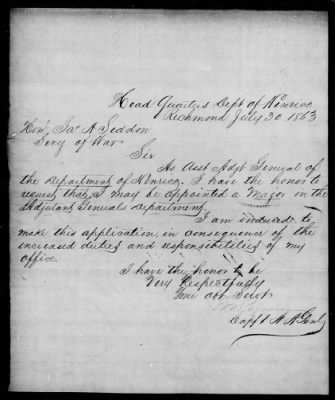 Head Quarters Dept of Henrico
Richmond July 30 1863
Hon. Jas A Seddon
Secy of War
Sir
As Asst Adjt General of
the Department of Henrico. I have the honor to
request that I may be appointed a Major in the
Adjutant Generals Department.
I am induced to
make this application in consequence of the
increased duties and responsibilities of my
office.
I have the honor to be
Very Respectfully
Your obt Servt
Capt & A A Genl